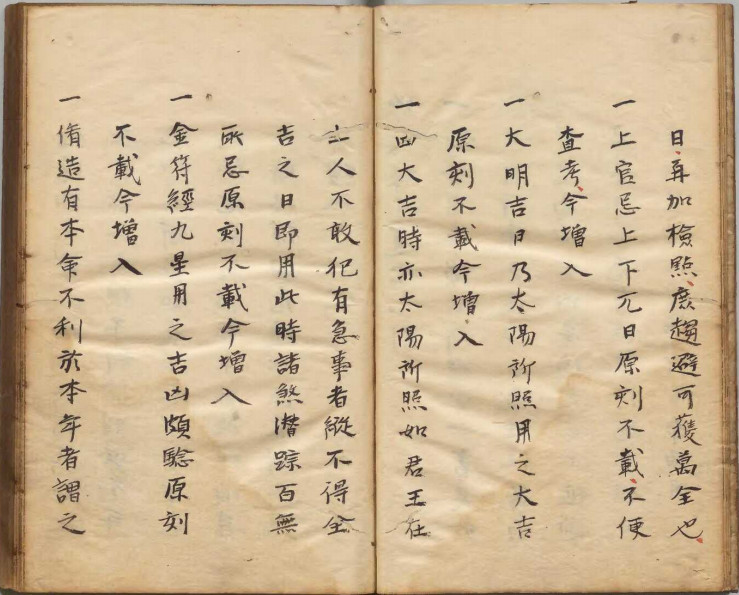 日再加檢㸃庶趨避可獲萬全也
一上官忌上下兀日原刻不載不便
查考今增入
一大明吉日乃太陽所照用之大吉
原刻不載今增入
一凶大吉時亦太陽所照如君王在
上人不敢犯有急事者縱不得全
吉之日即用此時諸煞潛踪百無
所忌原刻不載今增入
一金符經九星用之吉凶頗騐原刻
不載今增入
一脩造有本命不利於本年者謂之